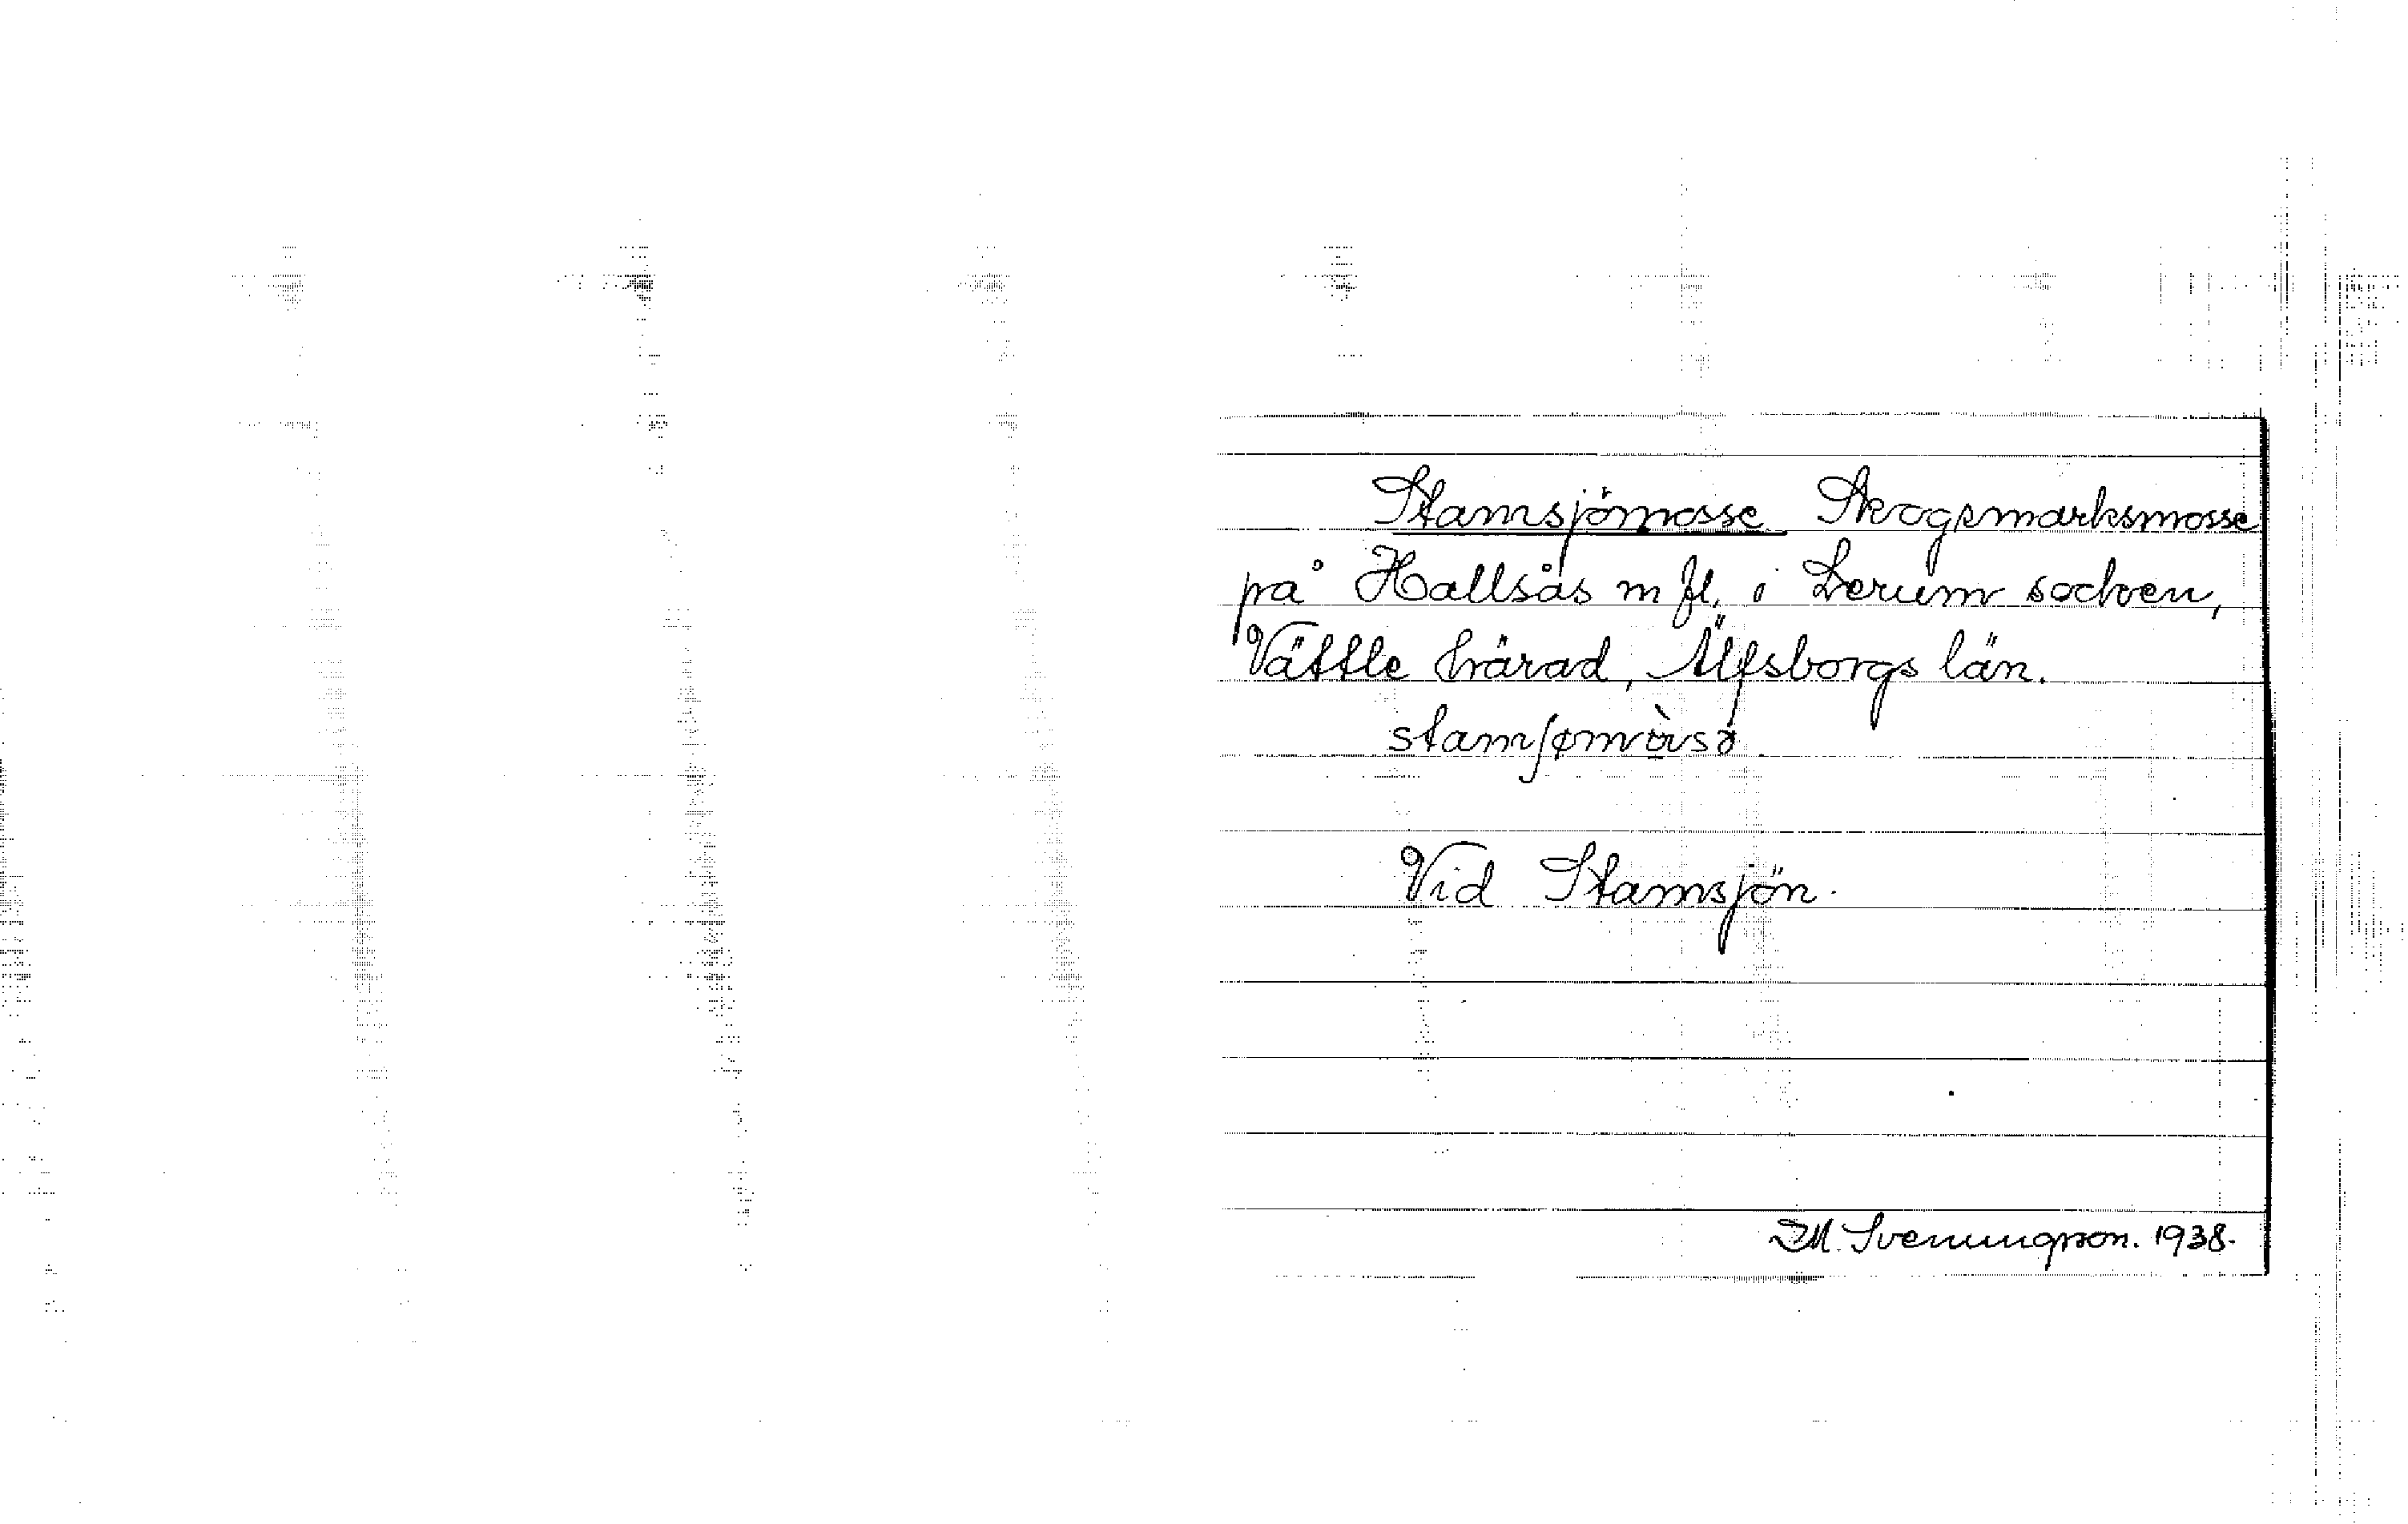 Stamsjömosse Skogsmarksmosse
på Hallsås m fl. i Lerum socken,
Vättle härad, Älfsborgs län.
Vid Stamsjön.
D.M. Svenungsson. 1938.